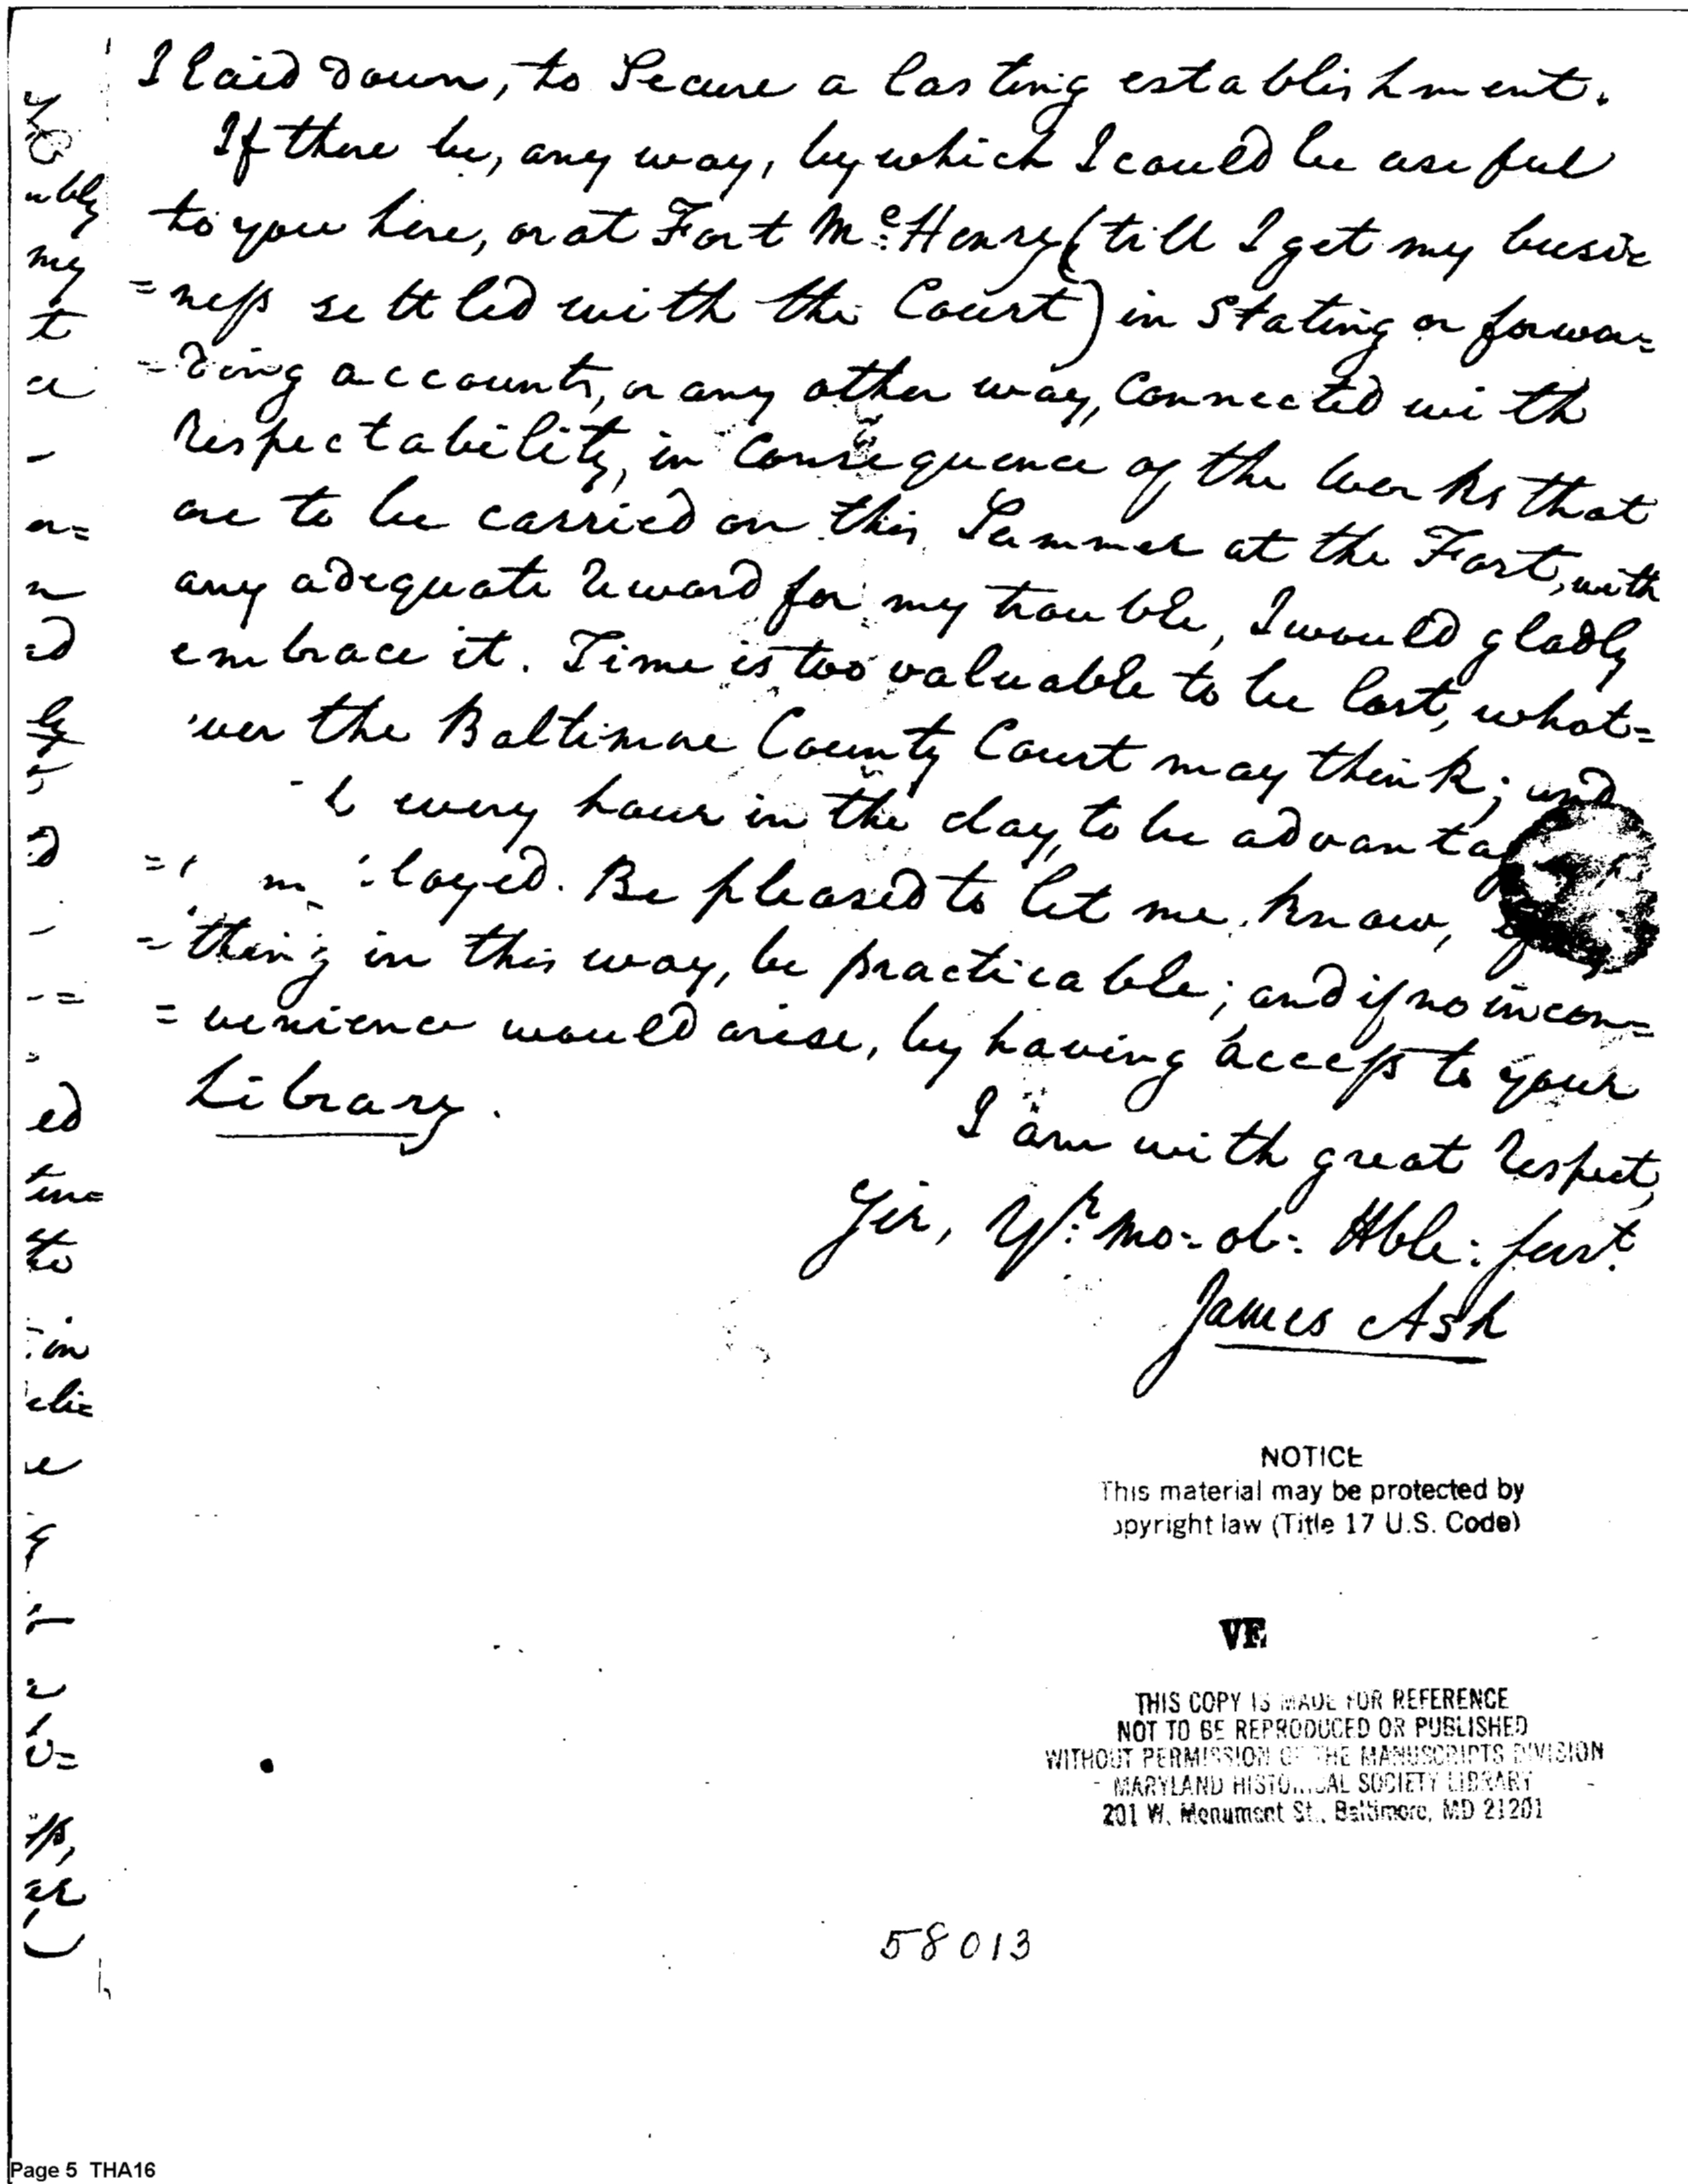 I laid down, to Secure a lasting establishment.
If there be, any way, by which I could be useful
to you here, or at Fort Mc:Henry (till I get my busi=
=neſs settled with the Court) in Stating or forwar=
=ding accounts, or any other way, Connected with
respectability, in Consequence of the works that
are to be carried on this Summer at the Fort, with
any adequate reward for my trouble, I would gladly
embrace it. Time is too valuable to be lost, what=
ever the Baltimore County Court may think; and
every hour in the day, to be advantag
loyed. Be pleased to let me know, if
=thing in this way, be practicable; and if no incon=
=venience would arise, by having acceſs to your
Library.
I am with great respect,
Sir, Yr: mo: ob: Hble: servt.
James Ash
ubly
my
t
a
ed
to
in
NOTICE
This material may be protected by
opyright law (Title 17 U.S. Code)
VE
THIS COPY IS MADE FOR REFERENCE
NOT TO BE REPRODUCED OR PUBLISHED
WITHOUT PERMISSION OF THE MANUSCRIPTS DIVISION
MARYLAND HISTORICAL SOCIETY LIBRARY
201 W. Monument St., Baltimore, MD 21201
58013
Page 5 THA16